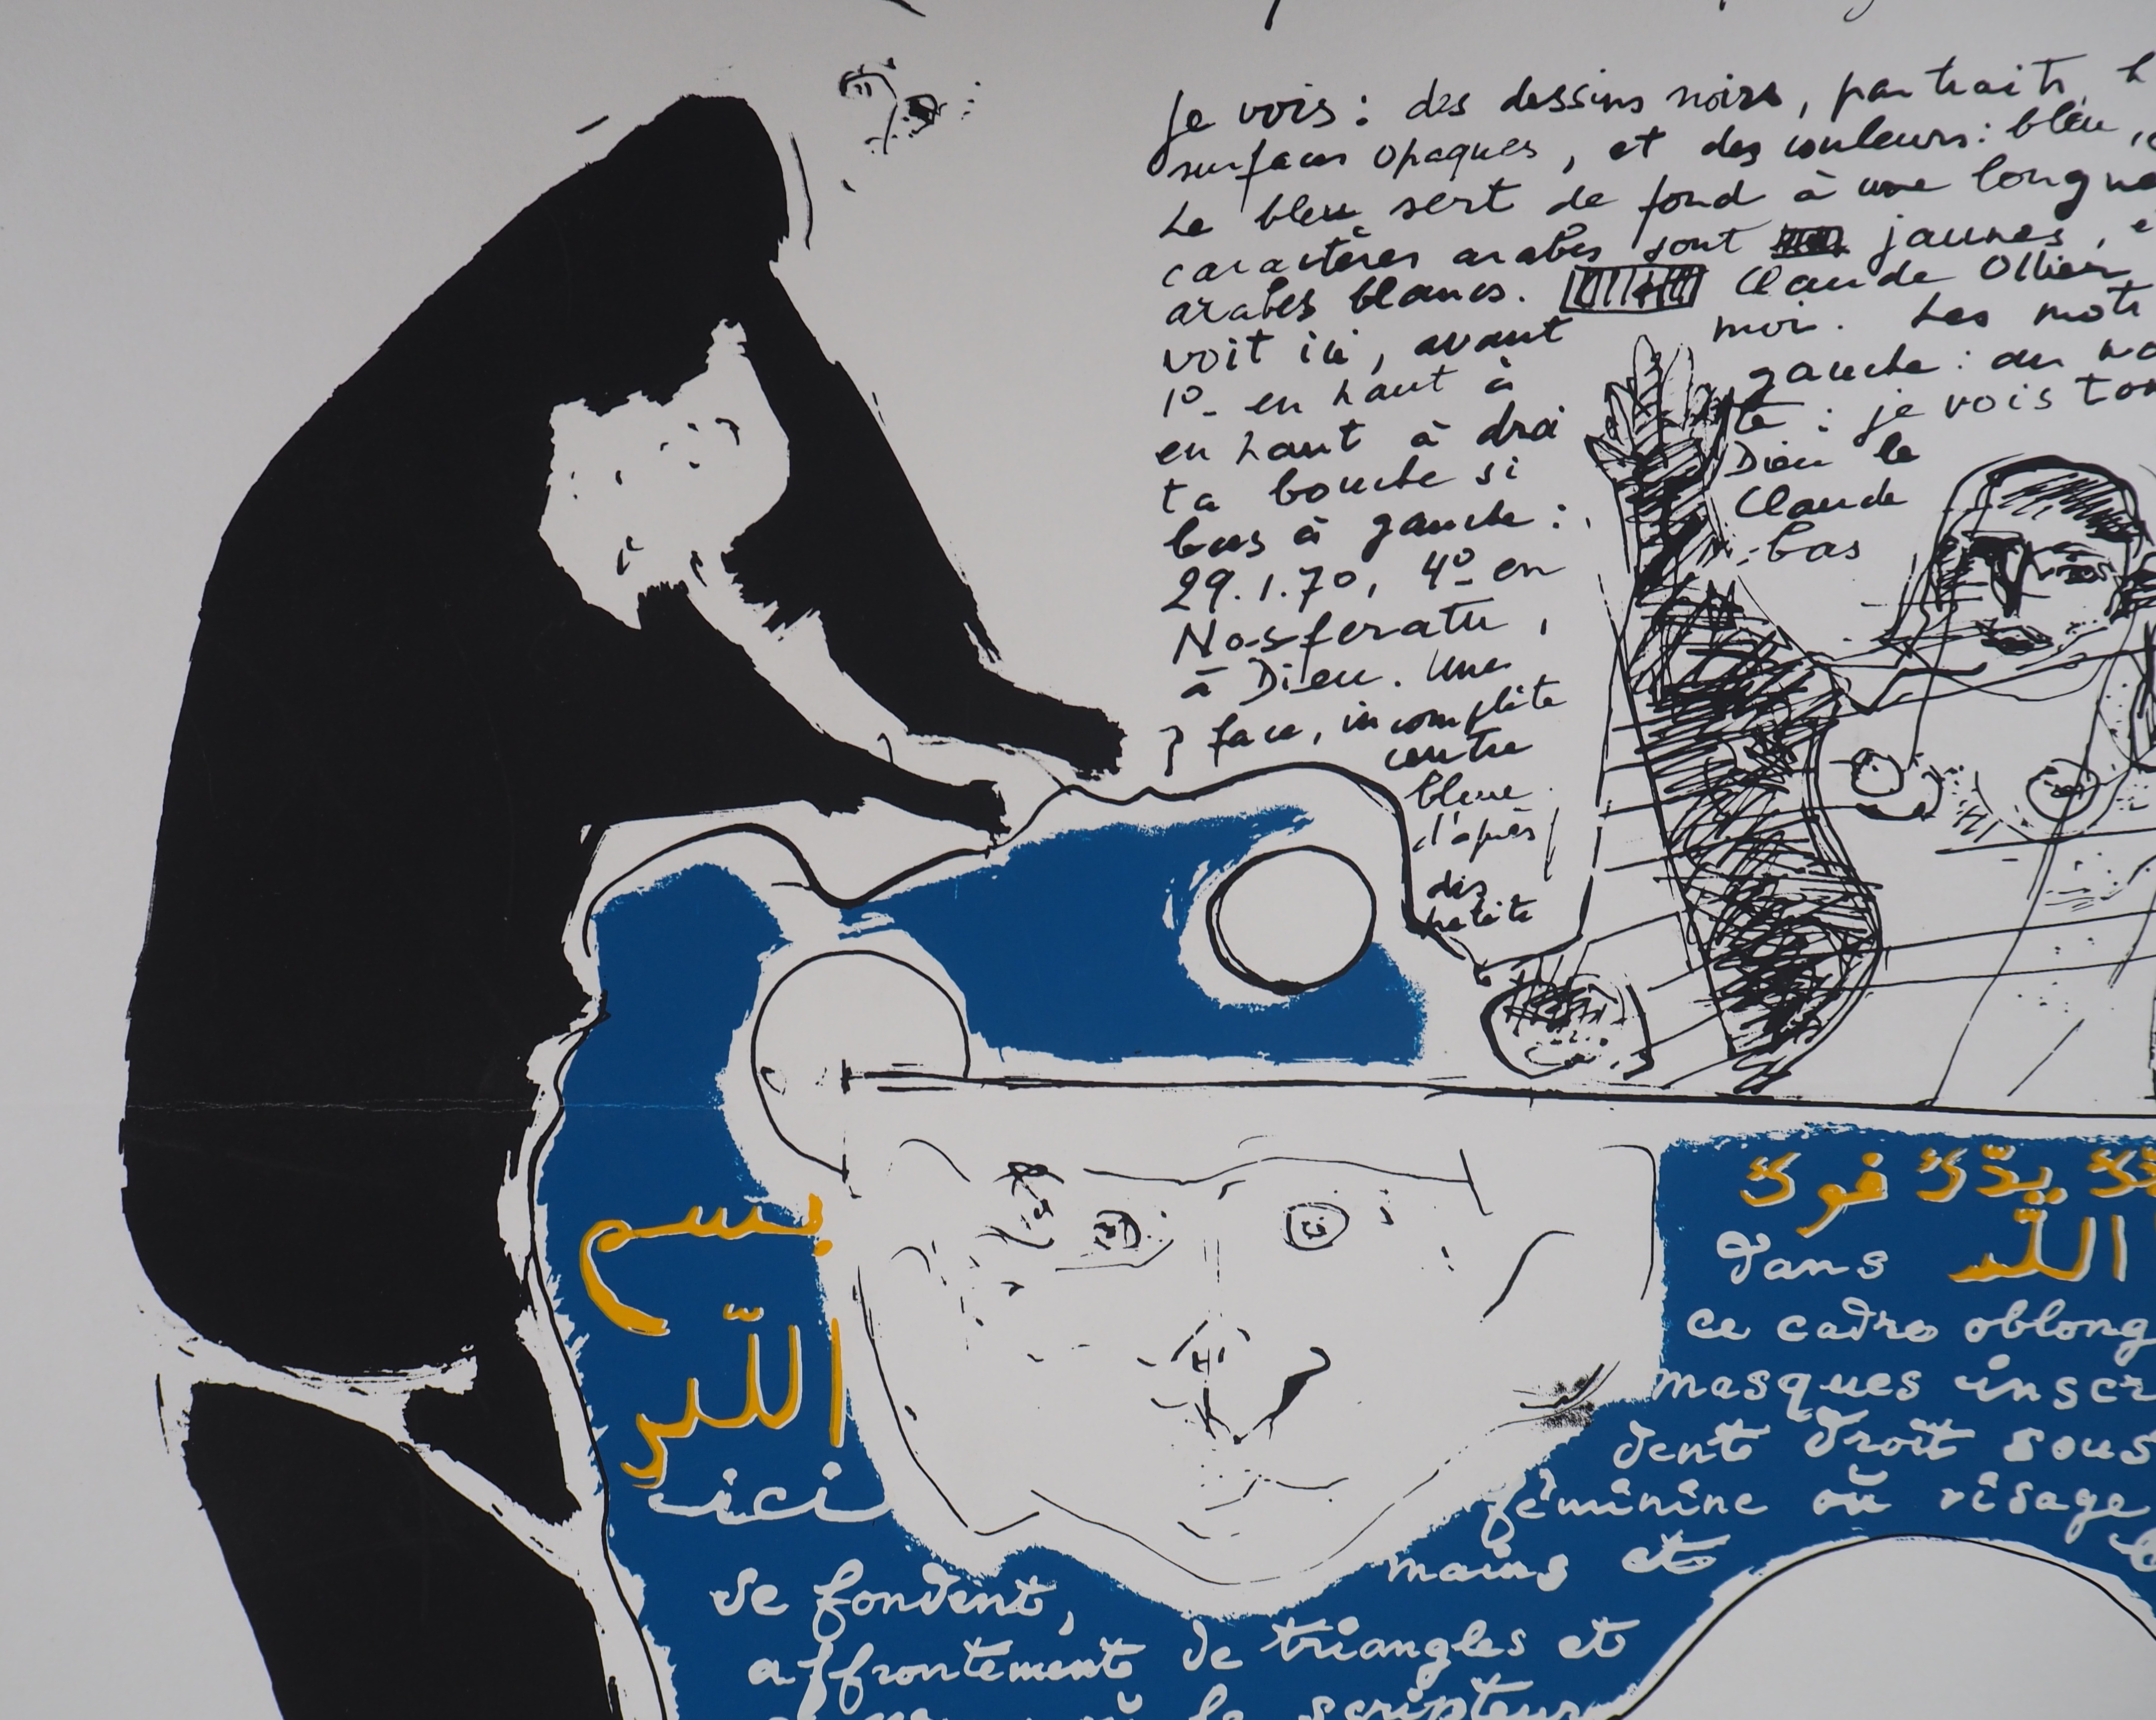 je vois : des dessins noirs, par traits,
surfaces opaques, et des couleurs : bleu,
Le bleu sert de fond à une longue
caractères arabes sont jaunes,
arabes blancs. Claude Ollier
voit ici, avant moi. Les mots
1º- en haut à gauche : au
en haut à droi te : je vois
ta bouche si Dieu le
bas à gauche : Claude
29.1.70, 4º en bas
Nosferatu,
à Dieu. Une
face, incomplète
contre
bleue
d'après
des
بسم
اللّٰه
ici
يدّك فوك
dans اللّٰه
ce cadre oblong
masques inscr
dent droit sous
féminine où visage
mains et
se fondent,
affrontement de triangles et
le scripteur